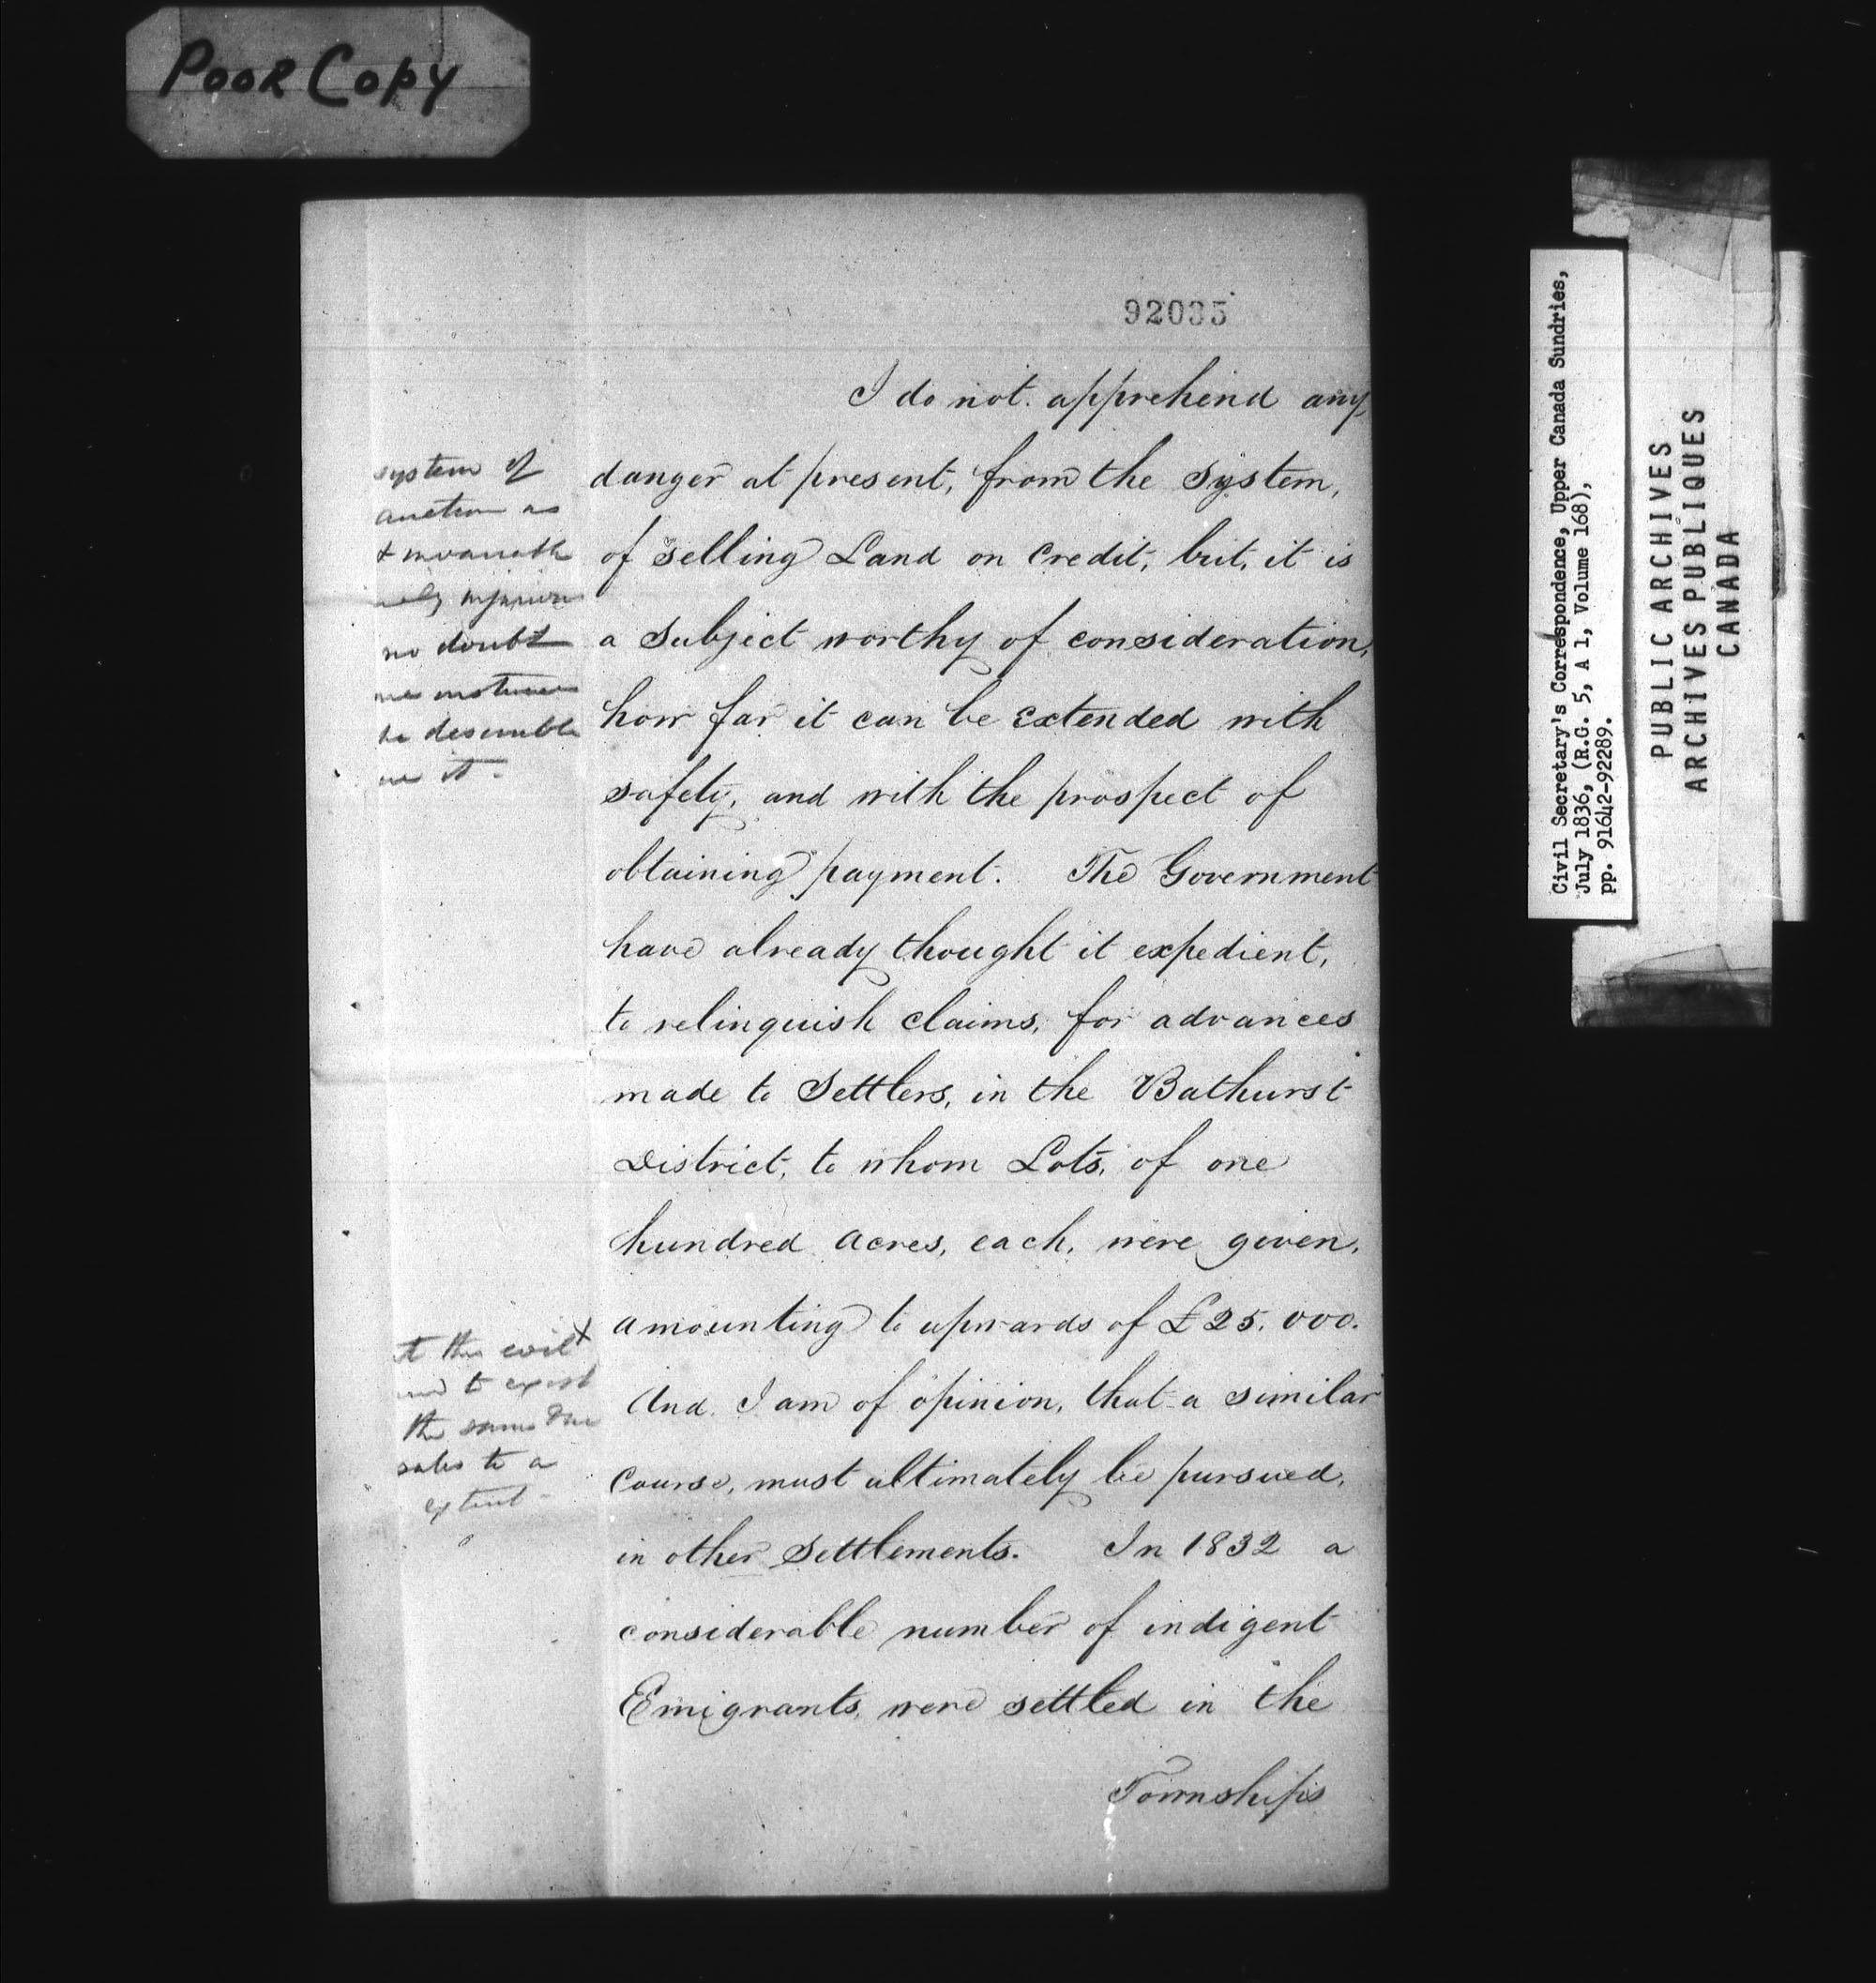 Poor Copy
92035
I do not apprehend any
danger at present, from the System,
of selling Land on Credit, but, it is
a Subject worthy of consideration,
how far it can be Extended with
safety, and with the prospect of
obtaining payment. The Government
have already thought it expedient,
to relinquish claims, for advances
made to Settlers, in the Bathurst
District, to whom Lots, of one
hundred Acres, each, were given,
amounting to upwards of £25.000.
And I am of opinion, that a similar
Course, must ultimately be pursued,
in other Settlements. In 1832 a
considerable number of indigent
Emigrants, were settled in the
Townships
system of
auction as
injurious
no doubt
be desirable
it -
the evil X
to exist
the same
sales to a
extent -
Civil Secretary's Correspondence, Upper Canada Sundries,
July 1836, (R.G. 5, A 1, Volume 168),
pp. 91642-92289.
PUBLIC ARCHIVES
ARCHIVES PUBLIQUES
CANADA